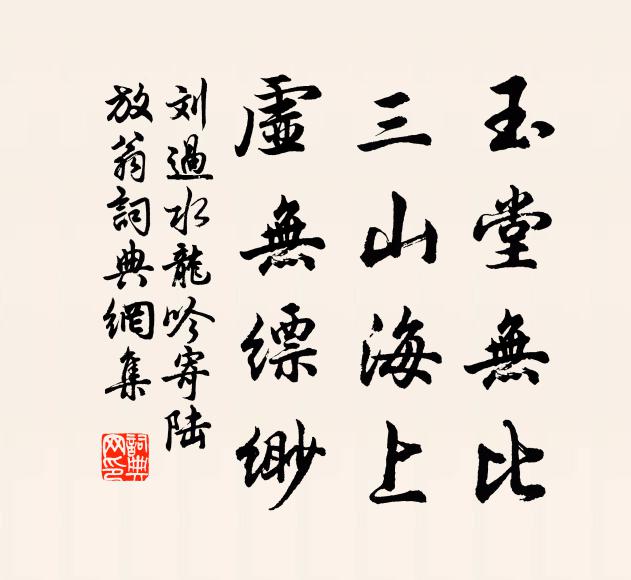 玉堂無比
三山海上
虛無縹緲
刘過水龍吟寄陆
放翁詞典網集
詞典網印